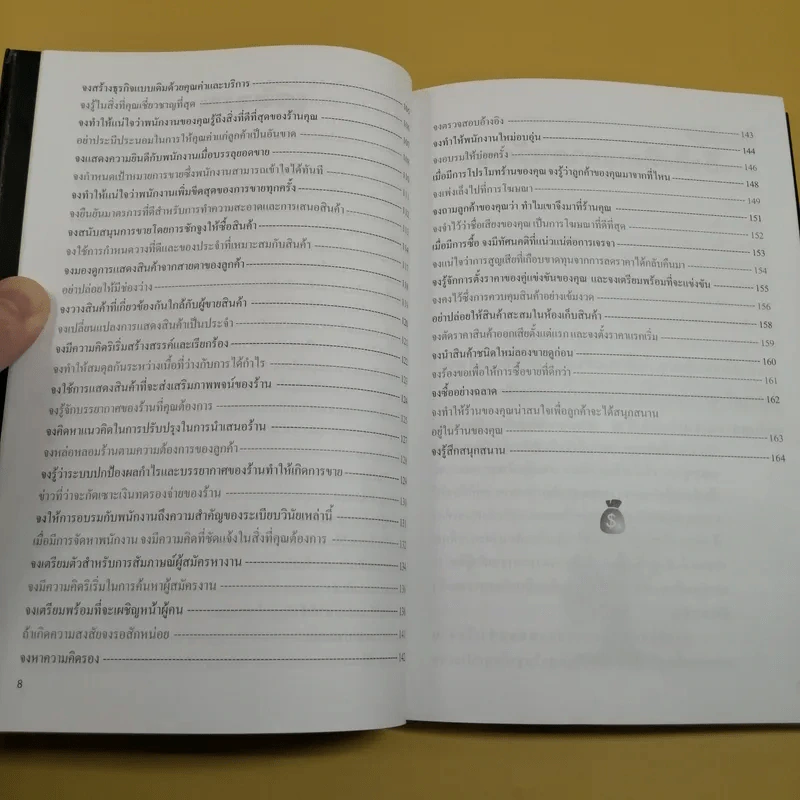 จงสร้างธุรกิจแบบเดิมด้วยคุณค่าและบริการ
จงรู้ในสิ่งที่คุณเชี่ยวชาญที่สุด
จงทำให้แน่ใจว่าพนักงานของคุณรู้ถึงสิ่งที่ดีที่สุดของร้านคุณ
อย่าประนีประนอมในการให้คุณค่าแก่ลูกค้าเป็นอันขาด
จงแสดงความยินดีกับพนักงานเมื่อบรรลุยอดขาย
จงกำหนดเป้าหมายการขายซึ่งพนักงานสามารถเข้าใจได้ทันที
จงทำให้แน่ใจว่าพนักงานเพิ่มขีดสุดของการขายทุกครั้ง
จงยืนยันมาตรการที่ดีสำหรับการทำความสะอาดและการเสนอสินค้า
จงสนับสนุนการขายโดยการชักจูงให้ซื้อสินค้า
จงใช้การกำหนดวางที่ดีและของประจำที่เหมาะสมกับสินค้า
จงมองดูการแสดงสินค้าจากสายตาของลูกค้า
อย่าปล่อยให้มีช่องว่าง
จงวางสินค้าที่เกี่ยวข้องกันใกล้กับผู้ขายสินค้า
จงเปลี่ยนแปลงการแสดงสินค้าเป็นประจำ 120
จงมีความคิดริเริ่มสร้างสรรค์และเรียกร้อง 121
จงทำให้สมดุลกันระหว่างเนื้อที่ว่างกับการได้กำไร 122
จงใช้การแสดงสินค้าที่จะส่งเสริมภาพพจน์ของร้าน 123
จงรู้จักบรรยากาศของร้านที่คุณต้องการ 124
จงคิดหาแนวคิดในการปรับปรุงในการนำเสนอร้าน
จงหล่อหลอมร้านตามความต้องการของลูกค้า
จงรู้ว่าระบบปกป้องผลกำไรและบรรยากาศของร้านทำให้เกิดการขาย
ข่าวที่ว่าจะกัดเซาะเงินทดรองจ่ายของร้าน
จงให้การอบรมกับพนักงานถึงความสำคัญของระเบียบวินัยเหล่านี้
เมื่อมีการจัดหาพนักงาน จงมีความคิดที่ชัดแจ้งในสิ่งที่คุณต้องการ
จงเตรียมตัวสำหรับการสัมภาษณ์ผู้สมัครหางาน
จงมีความคิดริเริ่มในการค้นหาผู้สมัครงาน
จงเตรียมพร้อมที่จะเผชิญหน้าผู้คน
ถ้าเกิดความสงสัยจงรอสักหน่อย
จงหาความคิดรอง 142
8
จงตรวจสอบอ้างอิง 143
จงทำให้พนักงานใหม่อบอุ่น 144
จงอบรมให้บ่อยครั้ง 146
เมื่อมีการโปรโมทร้านของคุณ จงรู้ว่าลูกค้าของคุณมาจากที่ไหน 148
จงเพ่งเล็งไปที่การโฆษณา 149
จงถามลูกค้าของคุณว่า ทำไมเขาจึงมาที่ร้านคุณ 151
จงจำไว้ว่าชื่อเสียงของคุณ เป็นการโฆษณาที่ดีที่สุด 152
เมื่อมีการซื้อ จงมีทัศนคติที่แน่วแน่ต่อการเจรจา 153
จงแน่ใจว่าการสูญเสียที่เกือบขาดทุนจากการลดราคาได้กลับคืนมา 154
จงรู้จักการตั้งราคาของคู่แข่งขันของคุณ และจงเตรียมพร้อมที่จะแข่งขัน 155
จงคงไว้ซึ่งการควบคุมสินค้าอย่างเข้มงวด 156
อย่าปล่อยให้สินค้าสะสมในห้องเก็บสินค้า 158
จงตัดราคาสินค้าออกเสียตั้งแต่แรก และจงตั้งราคาแรกเริ่ม 159
จงนำสินค้าชนิดใหม่ลองขายดูก่อน 160
จงร้องขอเพื่อให้การซื้อขายที่ดีกว่า 161
จงซื้ออย่างฉลาด 162
จงทำให้ร้านของคุณน่าสนใจเพื่อลูกค้าจะได้สนุกสนาน
อยู่ในร้านของคุณ 163
จงรู้สึกสนุกสนาน 164
$